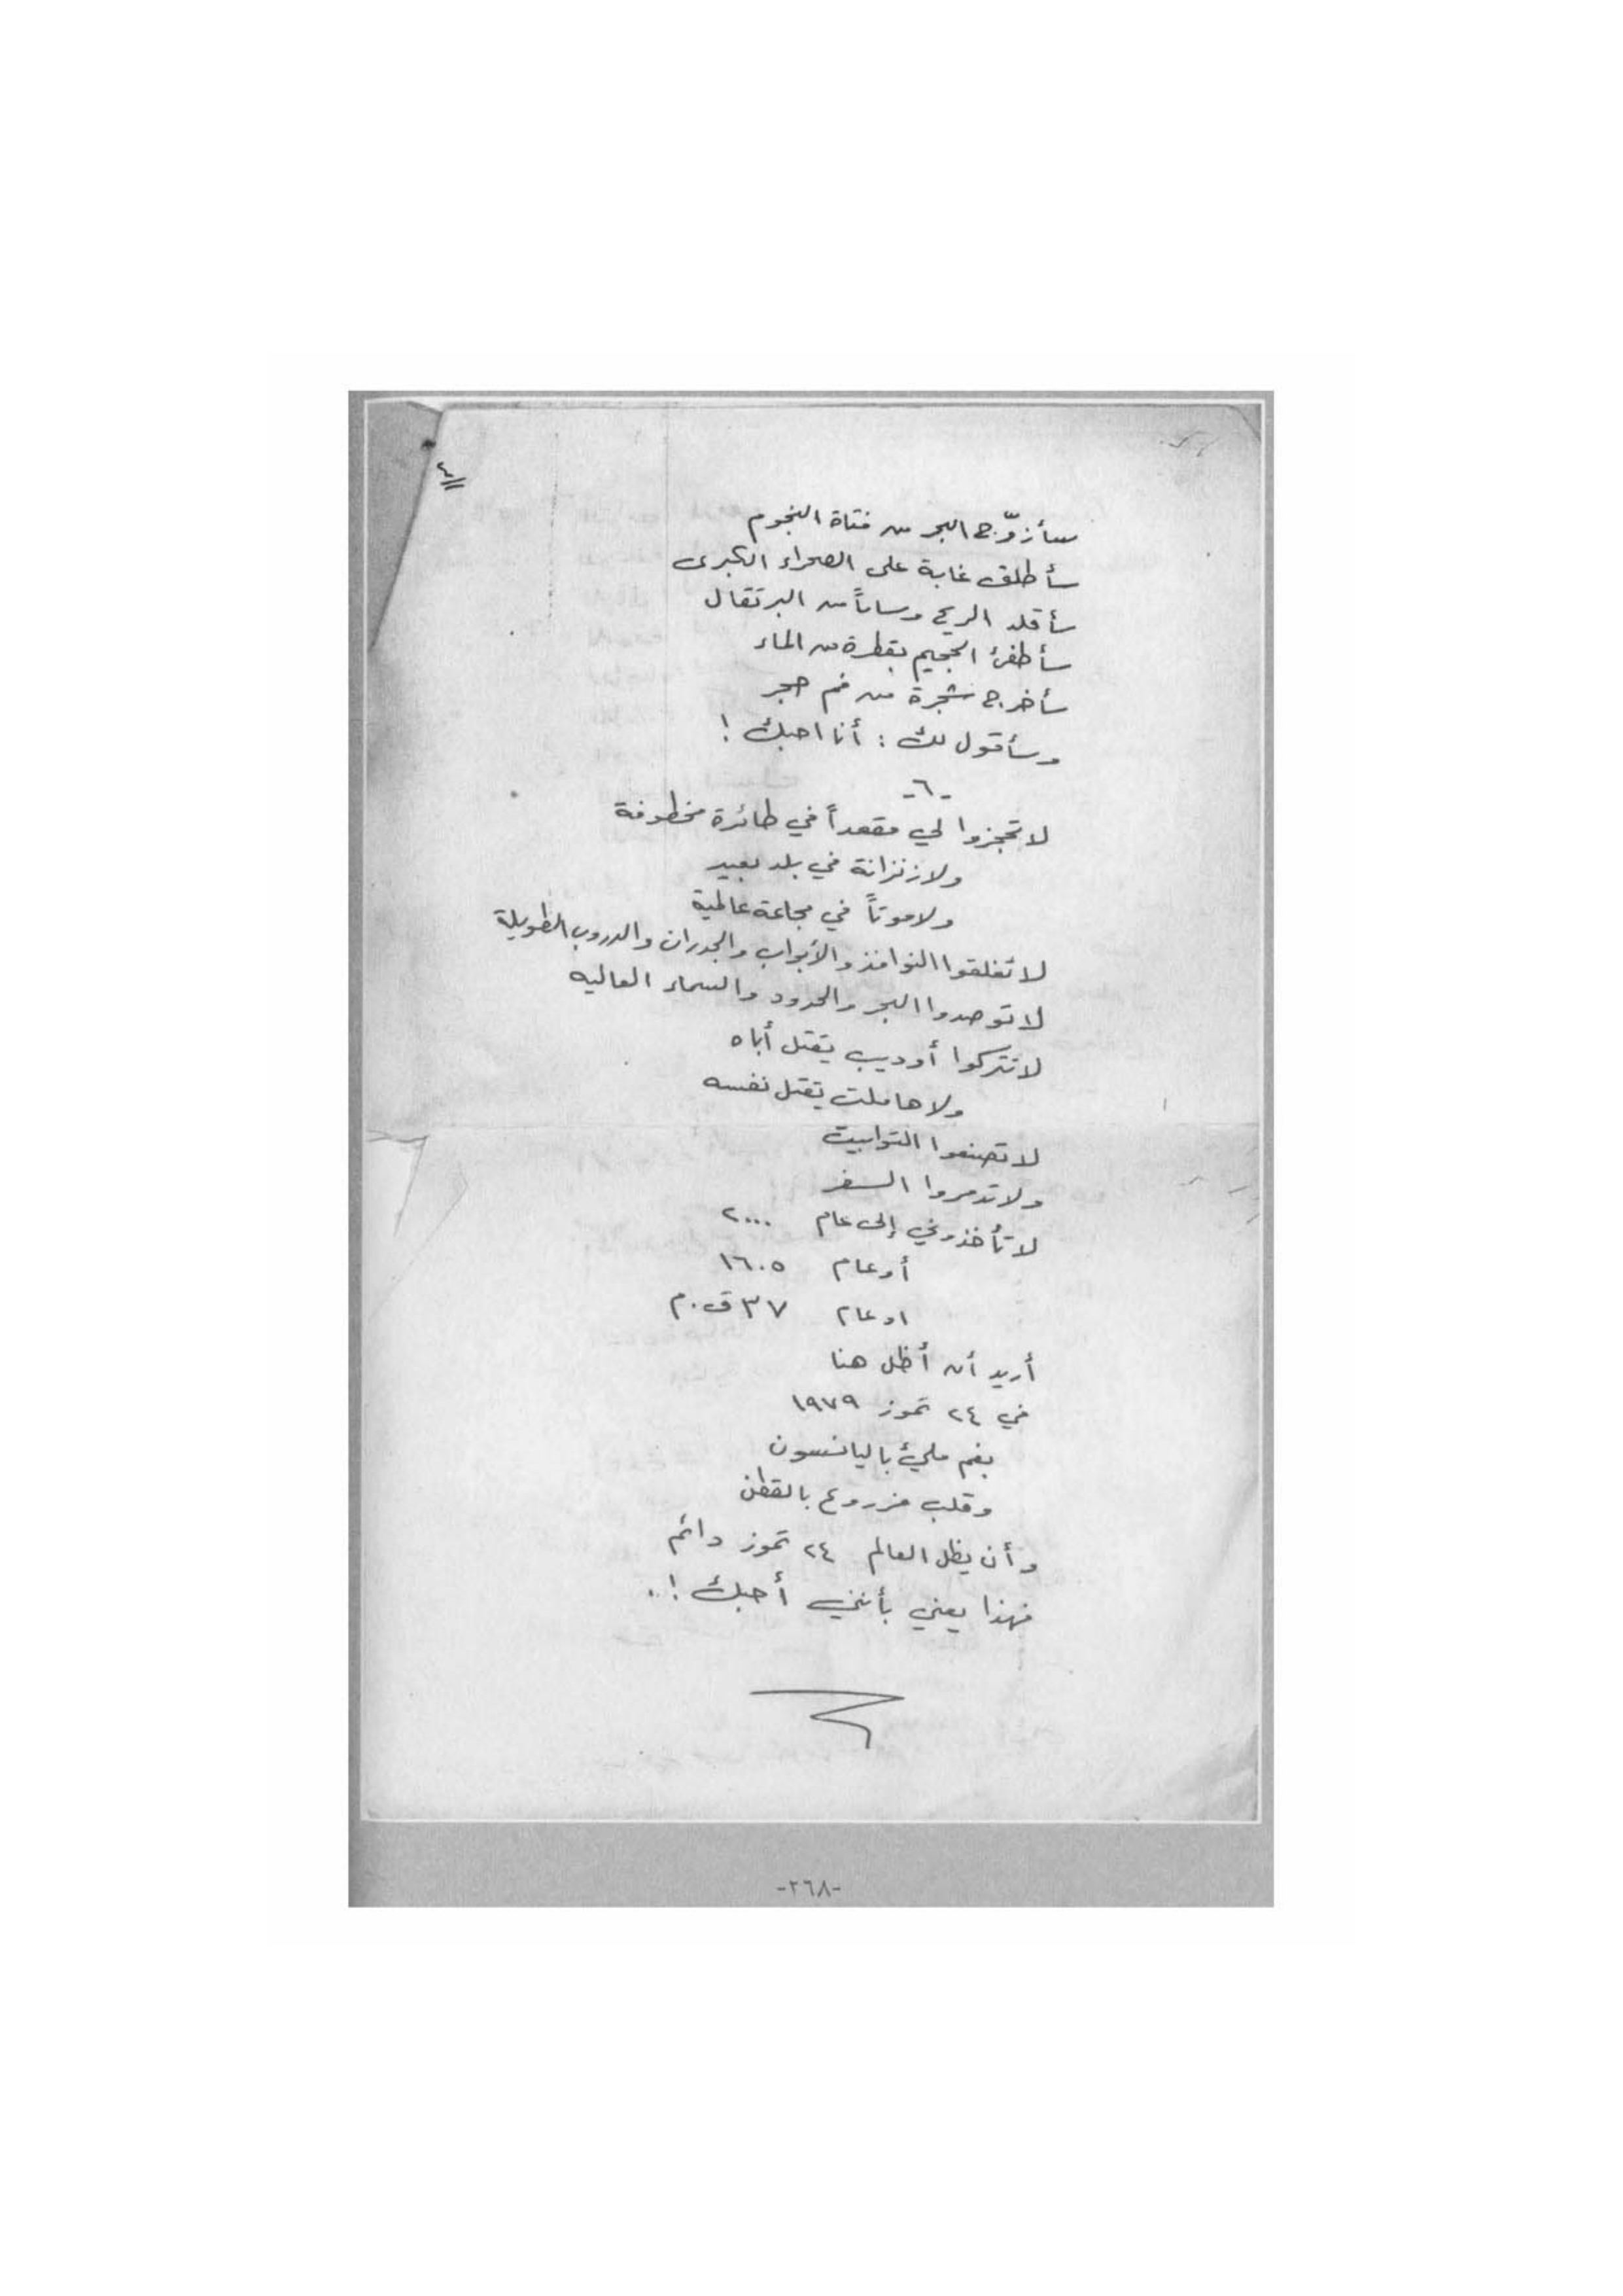 ٤
سأزوّج البحر من فتاة النجوم
سأطلق غابة على الصحراء الكبرى
سأقلد الريح وساماً من البرتقال
سأطفئ الجحيم بقطرة من الماء
سأخرج شجرة من فم حجر
وسأقول لك : أنا احبك !
-٦-
لا تحجزوا لي مقعداً في طائرة مخطوفة
ولا زنزانة في بلد بعيد
ولا موتاً في مجاعة عالمية
لا تغلقوا النوافذ والأبواب والجدران والدروب الطويلة
لا توصدوا البحر والحدود والسماء العاليه
لا تتركوا أوديب يقتل أباه
ولا هاملت يقتل نفسه
لا تصنعوا التوابيت
ولا تدمروا السفر
لا تأخذوني إلى عام ٢٠٠٠
أو عام ١٦٠٥
او عام ٣٧ ق.م
أريد أن أظل هنا
في ٢٤ تموز ١٩٧٩
بفم مليئ باليانسون
وقلب مزروع بالقطن
وأن يظل العالم ٢٤ تموز دائم
فهذا يعني بأنني أحبك !..
-٢٦٨-